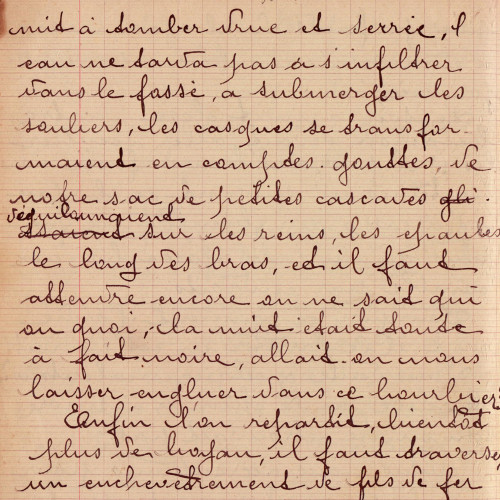 mit à tomber drue et serrée, l'
eau ne tarda pas à s'infiltrer
dans le fossé, à submerger les
souliers, les casques se transfor-
maient en comptes-gouttes, de
notre sac de petites cascades
dégoulinaient
sur les reins, les epaules
le long des bras, et il faut
attendre encore on ne sait qui
ou quoi, la nuit était toute
à fait noire, allait-on nous
laisser engluer dans ce bourbier?
Enfin l'on repartit, bientôt
plus de boyau, il faut traverser
un enchevêtrement de fils de fer